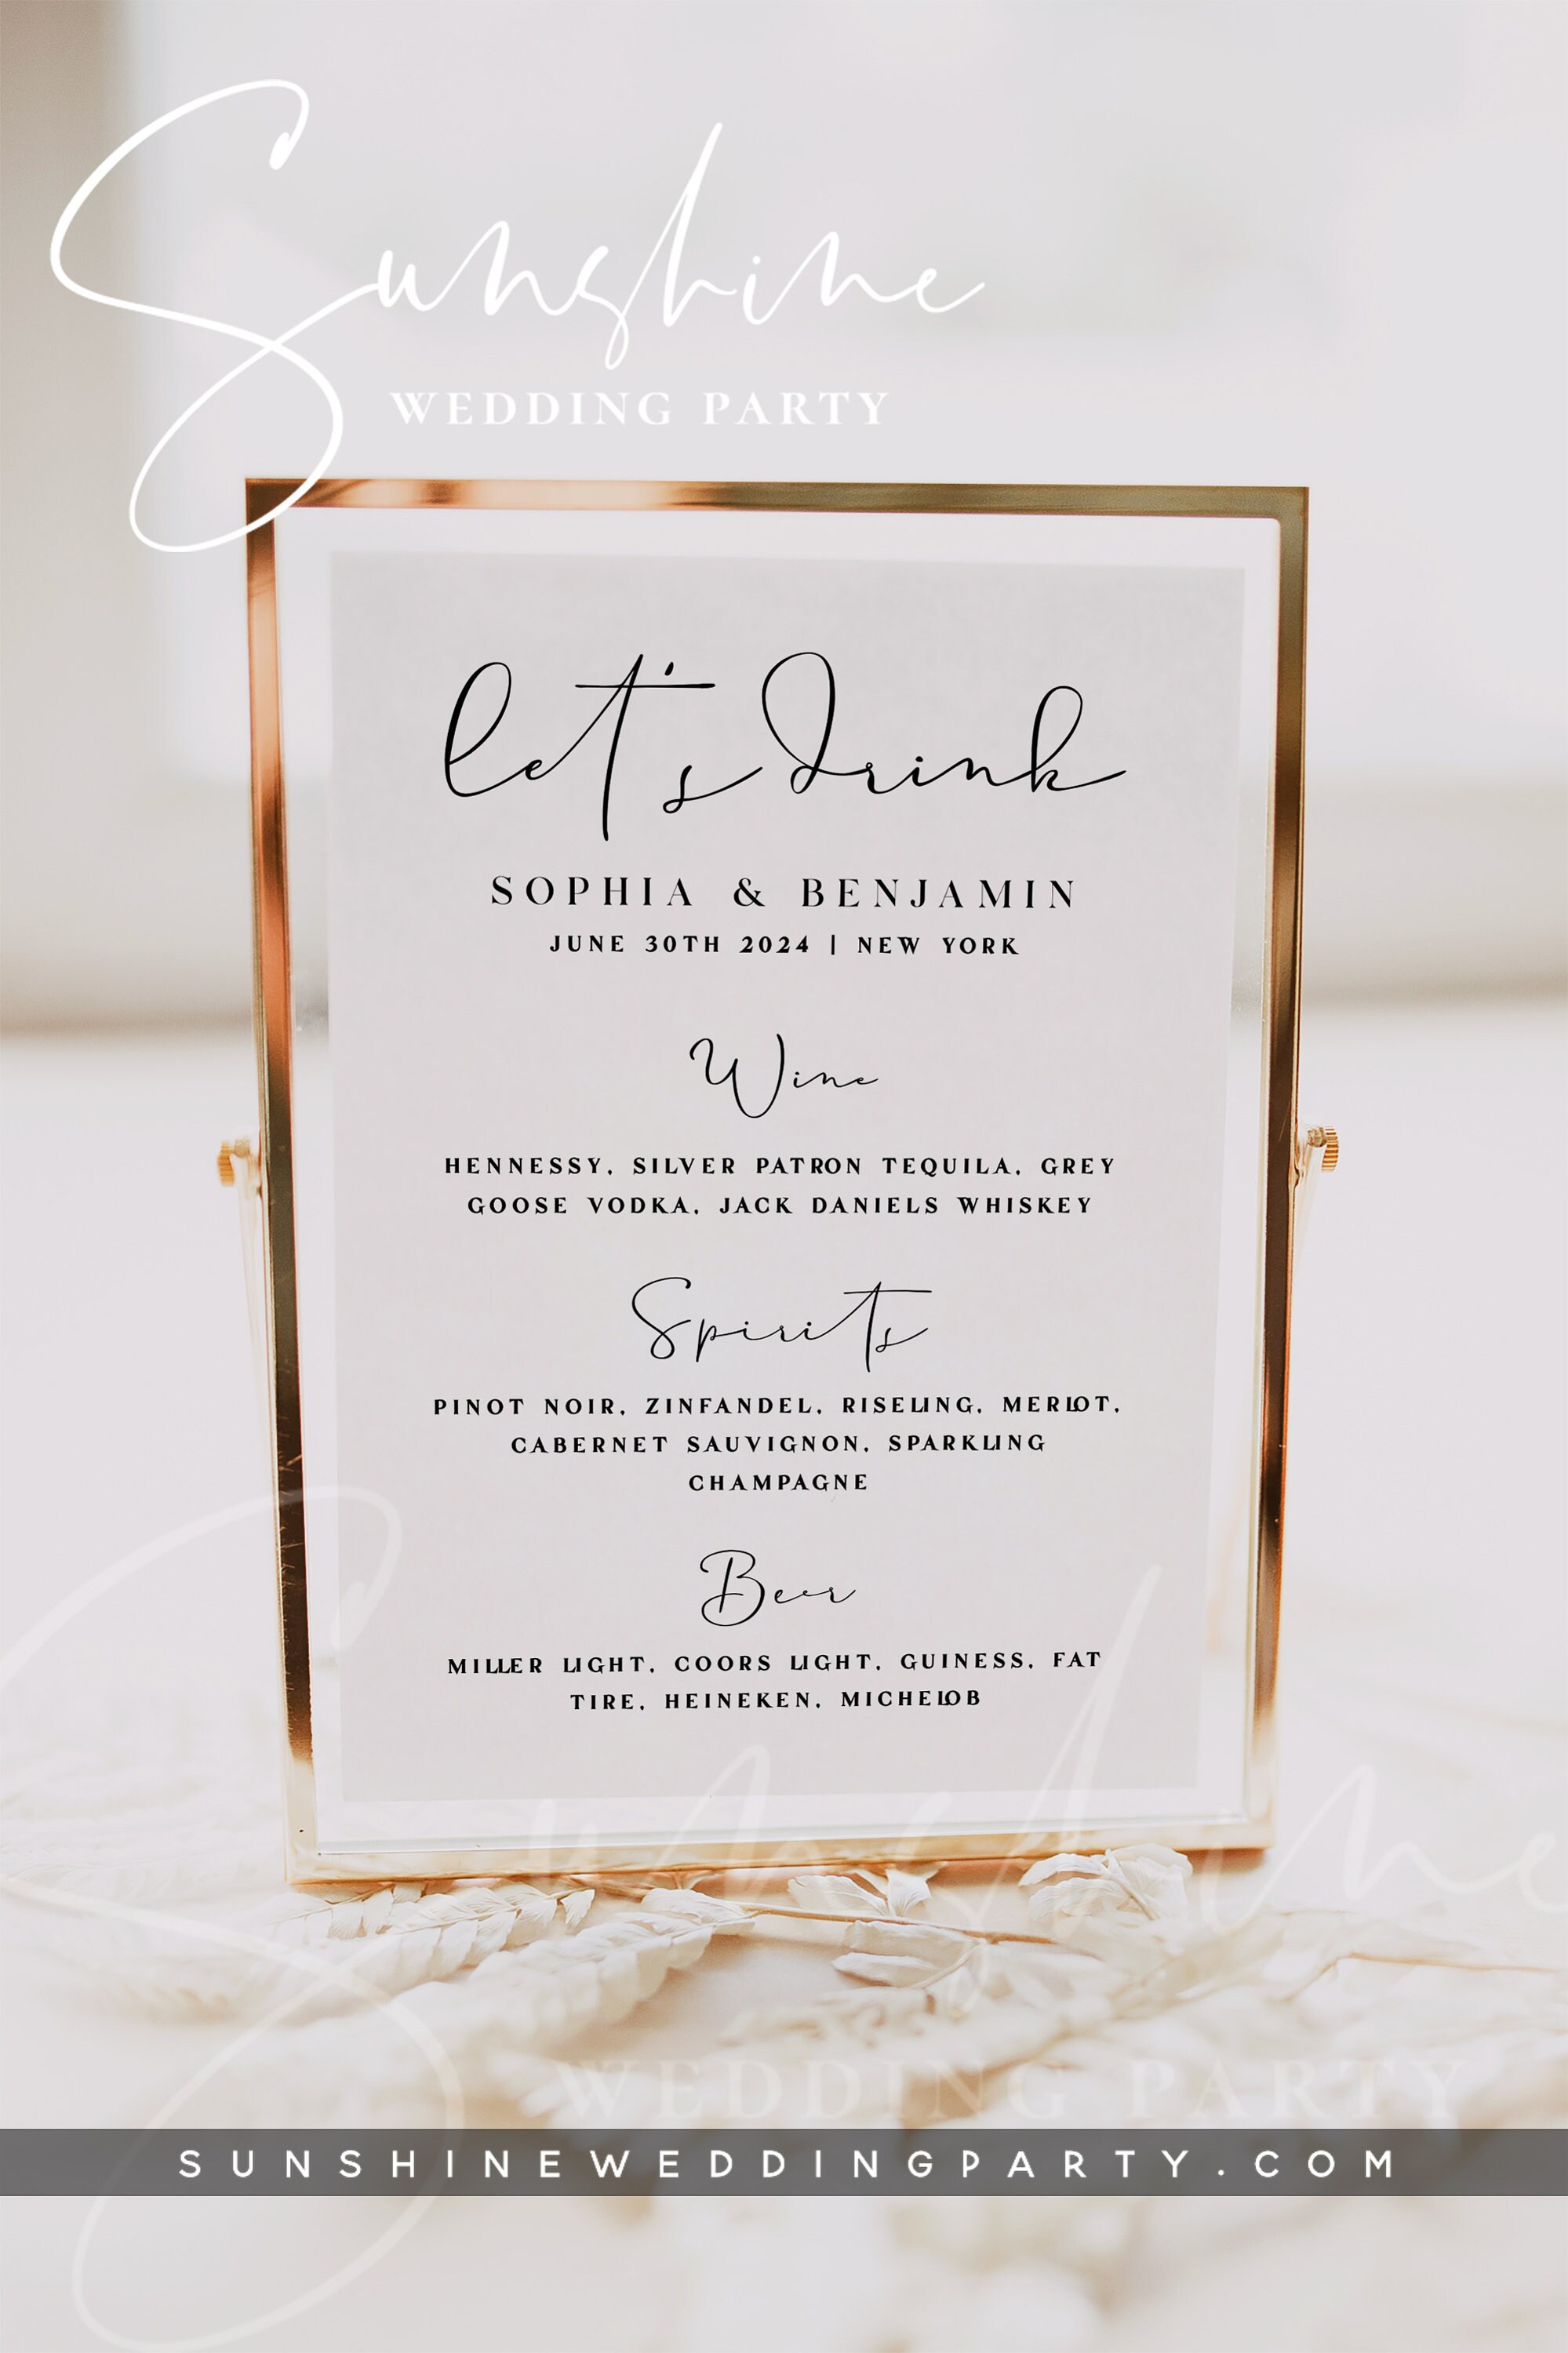 Sunshine
WEDDING PARTY
let's drink
SOPHIA & BENJAMIN
JUNE 30TH 2024 | NEW YORK
Wine
HENNESSY, SILVER PATRON TEQUILA, GREY
GOOSE VODKA, JACK DANIELS WHISKEY
Spirits
PINOT NOIR, ZINFANDEL, RISELING, MERLOT,
CABERNET SAUVIGNON, SPARKLING
CHAMPAGNE
Beer
MILLER LIGHT, COORS LIGHT, GUINESS, FAT
TIRE, HEINEKEN, MICHELOB
Sunshine
WEDDING PARTY
SUNSHINEWEDDINGPARTY.COM